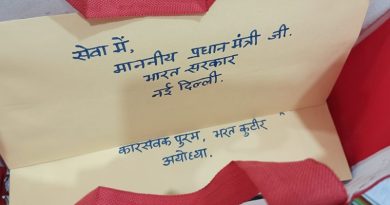 सेवा में,
माननीय प्रधान मंत्री जी.
भारत सरकार
नई दिल्ली.
कारसेवक पुरम, भरत कुटीर
अयोध्या.